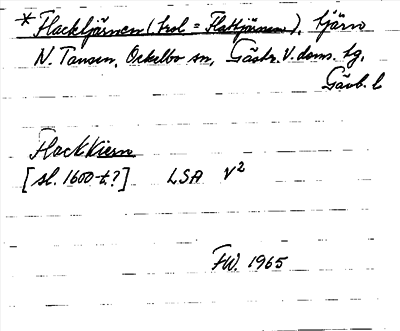 * Flacktjärnen (trol = Flaktjärnen), tjärn
N. Tansen, Ockelbo sn, Gästr. V. doms. tg,
Gävb. l
Flackkiern
[sl. 1600-t.?] LSA V²
FW. 1965